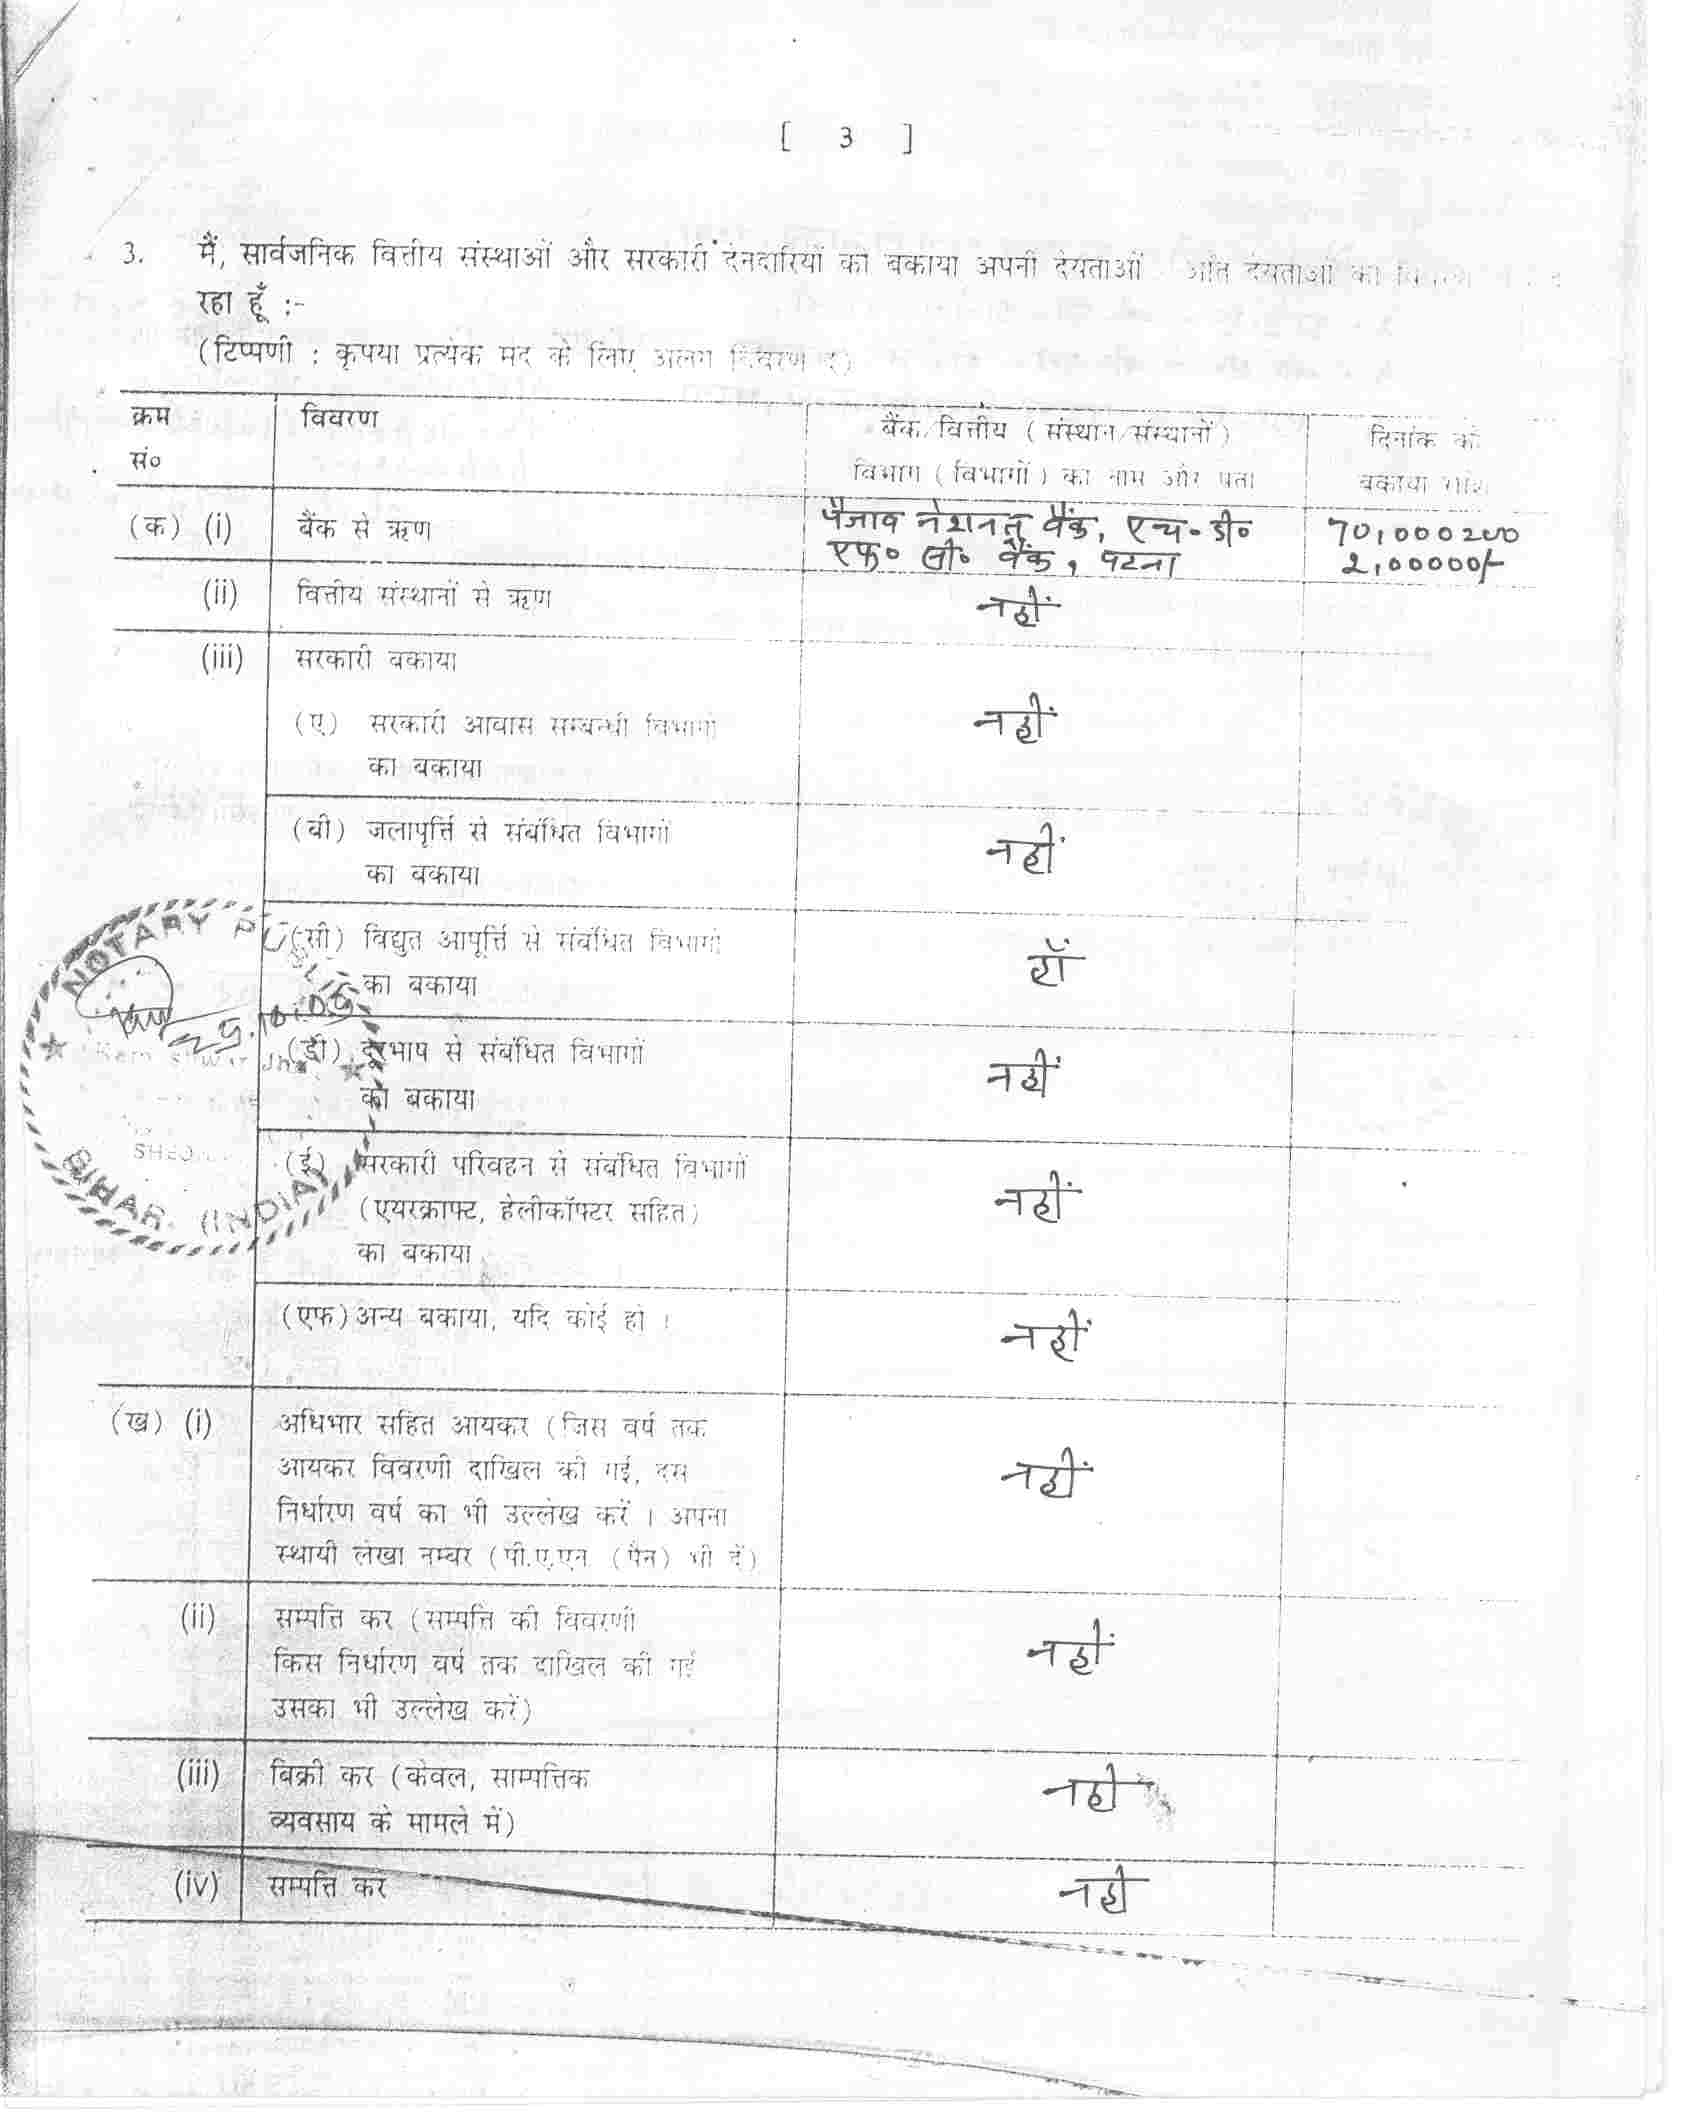 [ 3 ]
3. मैं, सार्वजनिक वित्तीय संस्थाओं और सरकारी देनदारियों को बकाया अपनी देयताओं
रहा हूँ :-
(टिप्पणी : कृपया प्रत्येक मद के लिए अलग विवरण दें)
क्रम विवरण बैंक/वित्तीय (संस्थान/संस्थानों) दिनांक को
सं० विभाग (विभागों) का नाम और पता बकाया राशि
(क) (i) बैंक से ऋण पंजाब नेशनल बैंक, एच० डी० 70,000200
एफ० सी० बैंक, पटना 2,00000/-
(ii) वित्तीय संस्थानों से ऋण नहीं
(iii) सरकारी बकाया
(ए) सरकारी आवास सम्बन्धी विभागों नहीं
का बकाया
(बी) जलापूर्त्ति से संबंधित विभागों नहीं
का बकाया
(सी) विद्युत आपूर्त्ति से संबंधित विभागों हाँ
का बकाया
(डी) दूरभाष से संबंधित विभागों नहीं
का बकाया
(ई) सरकारी परिवहन से संबंधित विभागों नहीं
(एयरक्राफ्ट, हेलीकॉप्टर सहित)
का बकाया
(एफ) अन्य बकाया, यदि कोई हो । नहीं
(ख) (i) अधिभार सहित आयकर (जिस वर्ष तक
आयकर विवरणी दाखिल की गई, उस नहीं
निर्धारण वर्ष का भी उल्लेख करें । अपना
स्थायी लेखा नम्बर (पी.ए.एन. (पैन) भी दें)
(ii) सम्पत्ति कर (सम्पत्ति की विवरणी
किस निर्धारण वर्ष तक दाखिल की गई नहीं
उसका भी उल्लेख करें)
(iii) बिक्री कर (केवल, साम्पत्तिक नहीं
व्यवसाय के मामले में)
(iv) सम्पत्ति कर नहीं
NOTARY PUBLIC
BIHAR. (INDIA)